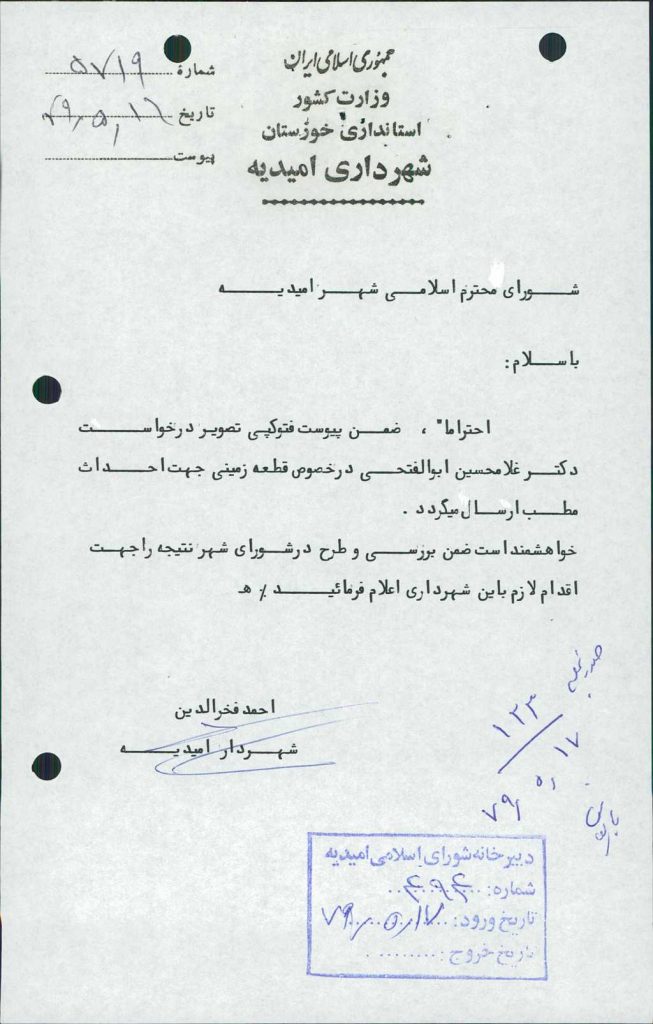 جمهوری اسلامی ایران
وزارت کشور
استانداری خوزستان
شهرداری امیدیه
شماره ۵۷۱۹
تاریخ ۷۹/۵/۱۶
پیوست
شورای محترم اسلامی شهر امیدیه
با سلام:
احتراما" ، ضمن پیوست فتوکپی تصویر درخواست
دکتر غلامحسین ابوالفتحی درخصوص قطعه زمینی جهت احداث
مطب ارسال میگردد .
خواهشمند است ضمن بررسی و طرح درشورای شهر نتیجه را جهت
اقدام لازم باین شهرداری اعلام فرمائید ٪ ھ
احمد فخرالدین
شهردار امیدیه
۱۳۳
۱۷
۷۹/۵
دبیرخانه شورای اسلامی امیدیه
شماره:
تاریخ ورود: ۷۹/۵/۱۷
تاریخ خروج: